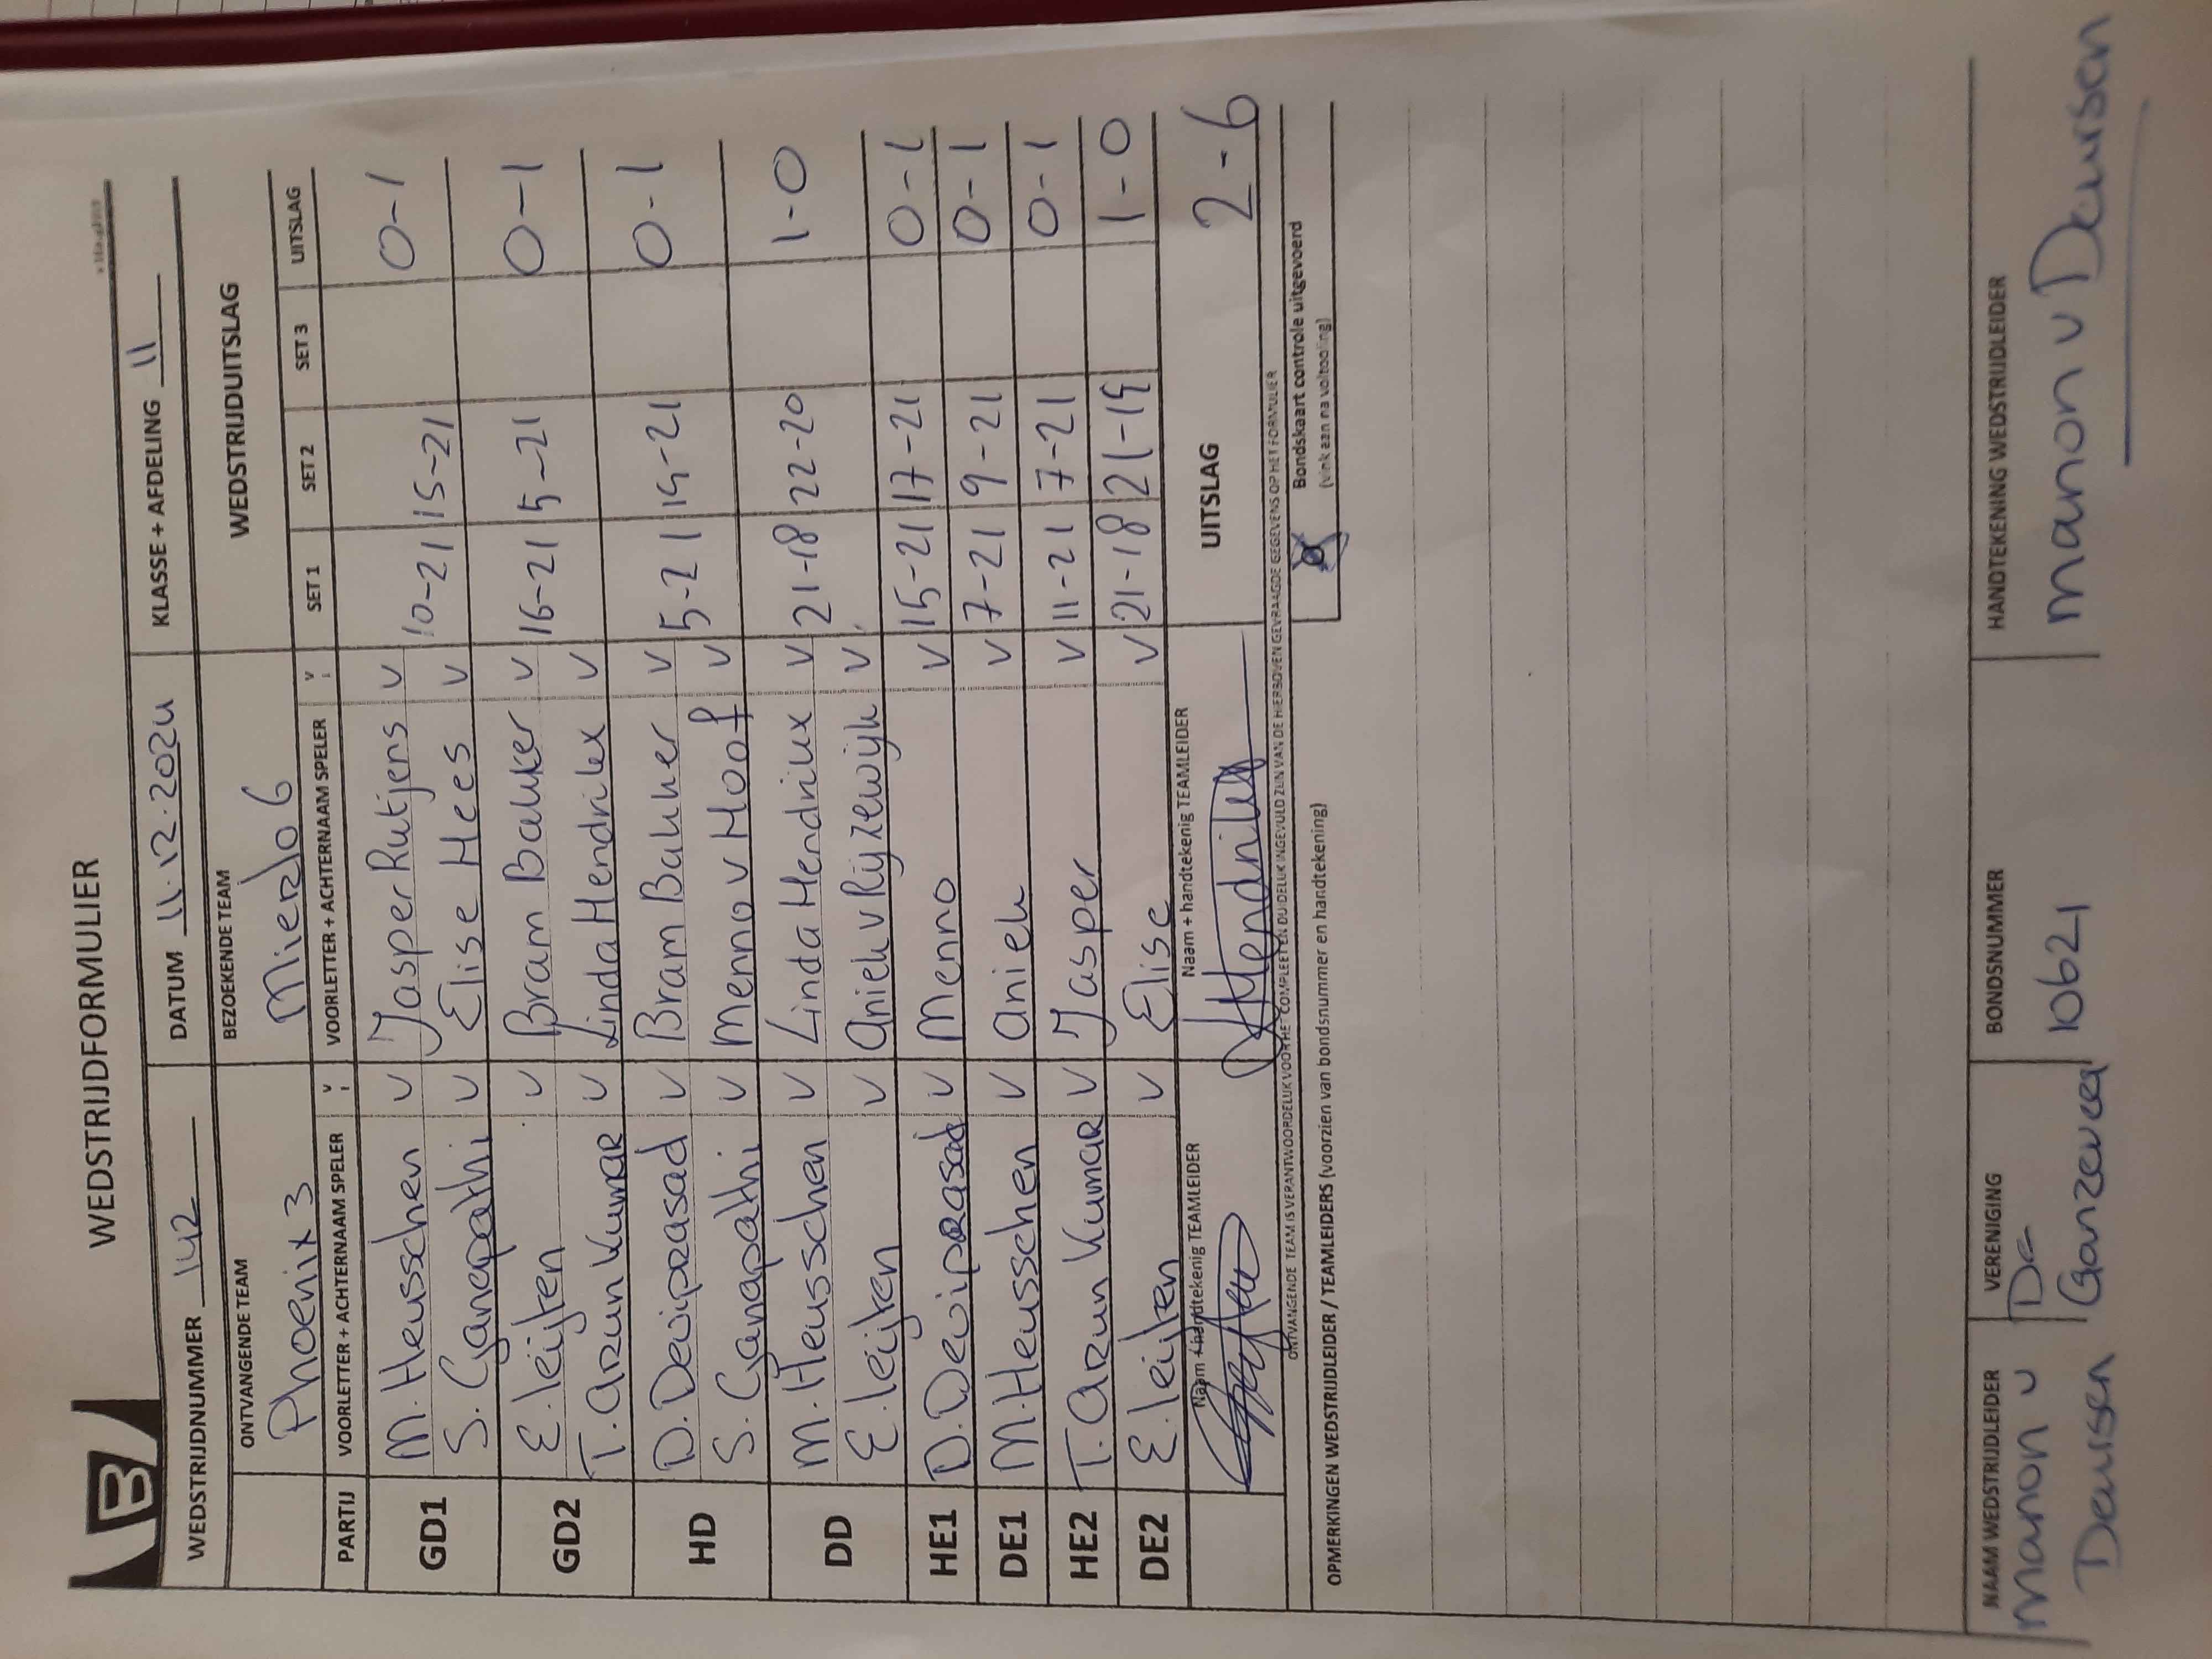 WEDSTRIJDFORMULIER
B
WEDSTRIJDNUMMER 142 DATUM 11.12.2024 KLASSE + AFDELING 11
ONTVANGENDE TEAM BEZOEKENDE TEAM WEDSTRIJDUITSLAG
Phoenix 3 Mierlo 6
PARTIJ VOORLETTER + ACHTERNAAM SPELER V VOORLETTER + ACHTERNAAM SPELER V SET 1 SET 2 SET 3 UITSLAG
GD1 M. Heusschen v Jasper Rutjens v 10-21 15-21 0-1
S. Ganapathi v Elise Hees v
GD2 E. leijten v Bram Bakker v 16-21 5-21 0-1
T. Arun Kumar v Linda Hendrikx v
HD D. Deviprasad v Bram Bakker v 5-21 19-21 0-1
S. Ganapathi v Menno v Hoof v
DD M. Heusschen v Linda Hendrikx v 21-18 22-20 1-0
E. leijten v Aniek v Rijzewijk v
HE1 D. Deviprasad v Menno v 15-21 17-21 0-1
DE1 M. Heusschen v Aniek v 7-21 9-21 0-1
HE2 T. Arun Kumar v Jasper v 11-21 7-21 0-1
DE2 E. leijten v Elise v 21-18 21-19 1-0
Naam + handtekenig TEAMLEIDER Naam + handtekenig TEAMLEIDER UITSLAG 2-6
Hendrikx
ONTVANGENDE TEAM IS VERANTWOORDELIJK VOOR HET COMPLEET EN DUIDELIJK INGEVULD ZIJN VAN DE HIERBOVEN GEVRAAGDE GEGEVENS OP HET FORMULIER
Bondskaart controle uitgevoerd
(vink aan na voltooiing)
OPMERKINGEN WEDSTRIJDLEIDER / TEAMLEIDERS (voorzien van bondsnummer en handtekening)
NAAM WEDSTRIJDLEIDER VERENIGING BONDSNUMMER HANDTEKENING WEDSTRIJDLEIDER
manon v De 10621 manon v Deursen
Deursen Ganzeveer